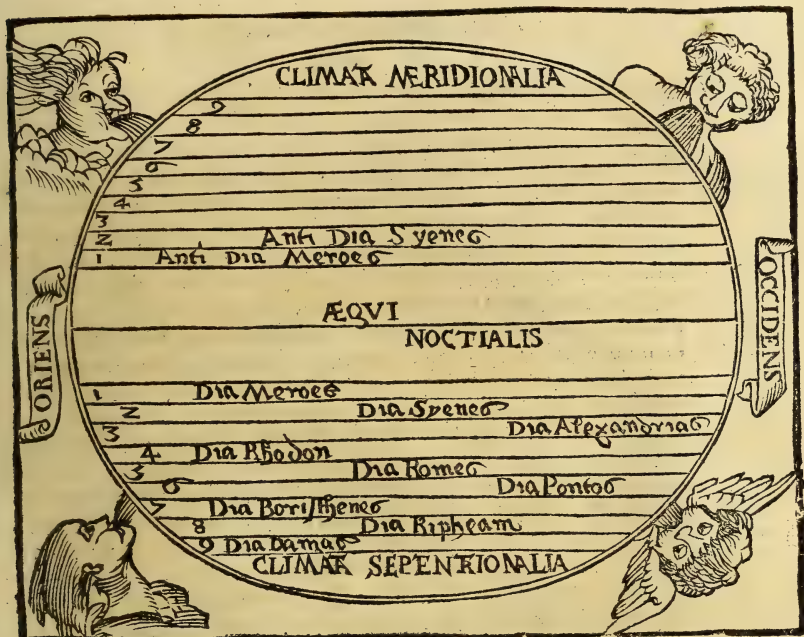 CLIMATA MERIDIONALIA
9
8
7
6
5
4
3
2 Anti Dia Syenes
1 Anti Dia Meroes
ORIENS
OCCIDENS
ÆQVI
NOCTIALIS
1 Dia Meroes
2 Dia Syenes
3 Dia Alexandrias
4 Dia Rhodon
5 Dia Romes
6 Dia Pontos
7 Dia Boristhenes
8 Dia Ripheam
9 Dia Damas
CLIMATA SEPTENTRIONALIA